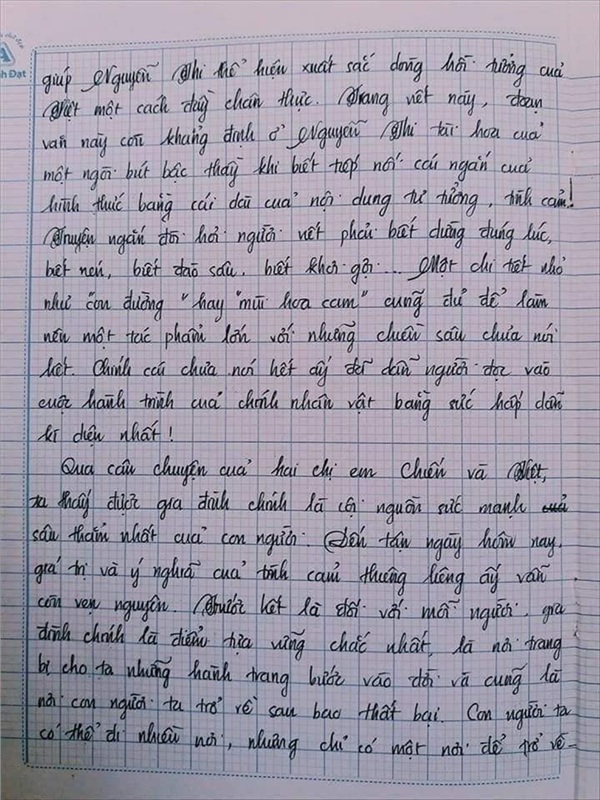 nh Đạt
giúp Nguyễn Thi thể hiện xuất sắc dòng hồi tưởng của
Việt một cách đầy chân thực. Trang viết này, đoạn
văn này còn khẳng định ở Nguyễn Thi tài hoa của
một ngòi bút bậc thầy khi biết tiếp nối cái ngắn của
hình thức bằng cái dài của nội dung tư tưởng, tình cảm!
Truyện ngắn đòi hỏi người viết phải biết dừng đúng lúc,
biết nén, biết đào sâu, biết khơi gợi... Một chi tiết nhỏ
như "con đường" hay "mùi hoa cam" cũng đủ để làm
nên một tác phẩm lớn với những chiều sâu chưa nói
hết. Chính cái chưa nói hết ấy để dẫn người đọc vào
cuộc hành trình của chính nhân vật bằng sức hấp dẫn
kì diệu nhất!
Qua câu chuyện của hai chị em Chiến và Việt,
ta thấy được gia đình chính là cội nguồn sức mạnh
sâu thẳm nhất của con người. Đến tận ngày hôm nay,
giá trị và ý nghĩa của tình cảm thiêng liêng ấy vẫn
còn vẹn nguyên. Trước hết là đối với mỗi người, gia
đình chính là điểm tựa vững chắc nhất, là nơi trang
bị cho ta những hành trang bước vào đời và cũng là
nơi con người ta trở về sau bao thất bại. Con người ta
có thể đi nhiều nơi, nhưng chỉ có một nơi để trở về-